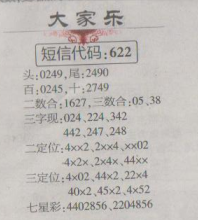 大家乐
短信代码:622
头:0249,尾:2490
百:0245,十:2749
二数合:1627,三数合:05、38
三字现:024、224、342
442、247、248
二定位:4××2、2××4、××02
4×2×、2×4×、44××
三定位:4×02、44×2、22×4
40×2、45×2、4×52
七星彩:4402856、2204856